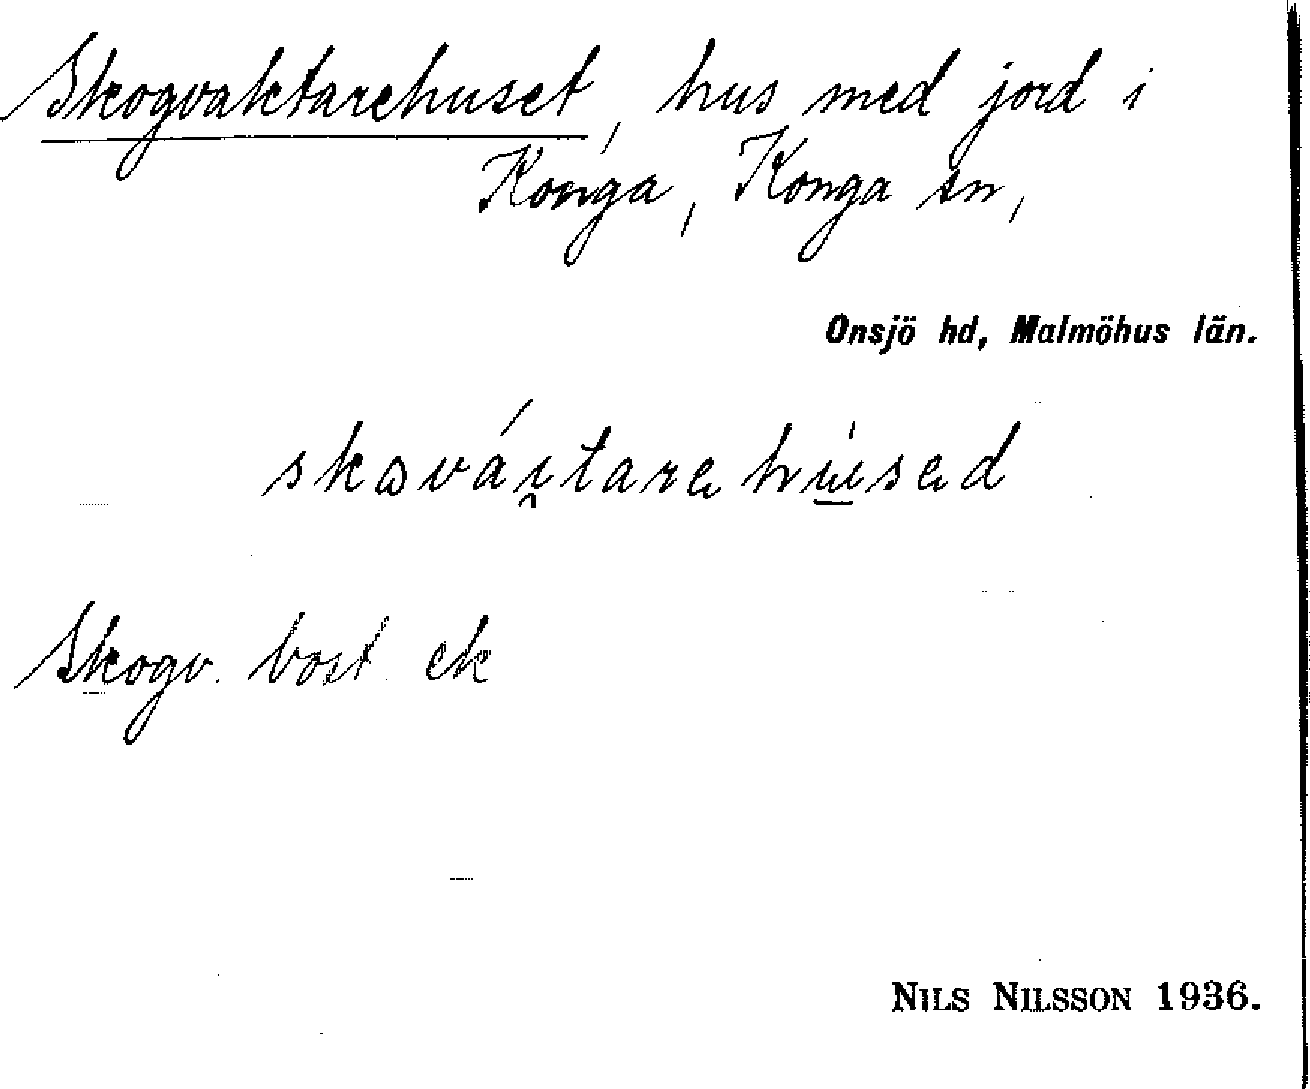 Skogvaktarehuset, hus med jord i
Konga, Konga sn,
Onsjö hd, Malmöhus län.
skɷvái̯tarəhúsəd
Skogv. bost. ek
NILS NILSSON 1936.